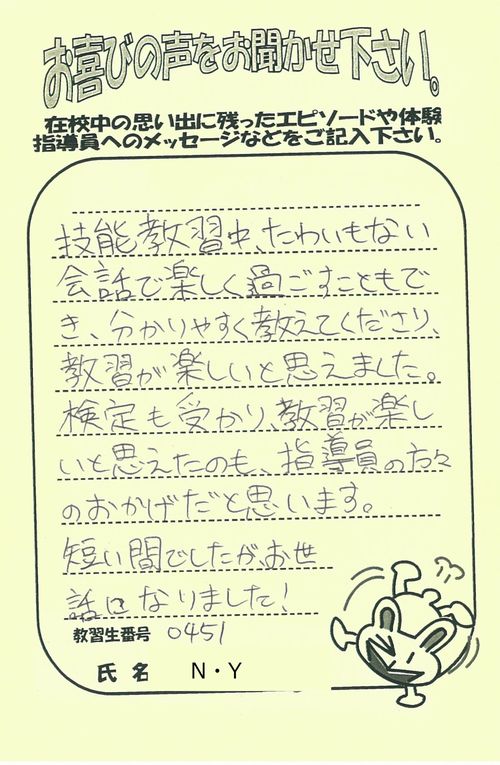 お喜びの声をお聞かせ下さい。
在校中の思い出に残ったエピソードや体験
指導員へのメッセージなどをご記入下さい。
技能教習中、たわいもない
会話で楽しく過ごすこともで
き、分かりやすく教えてくださり、
教習が楽しいと思えました。
検定も受かり、教習が楽し
いと思えたのも、指導員の方々
のおかげだと思います。
短い間でしたが、お世
話になりました!
教習生番号 0451
氏名 N・Y